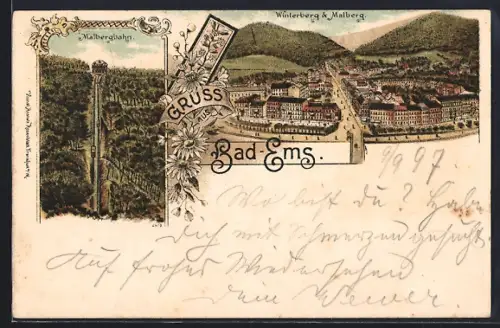 Winterberg & Malberg.
Malbergbahn.
GRUSS
AUS
Bad-Ems.
9/9 97
Wo bist du? Habe
Dich mit Schmerzen gesucht
Auf frohes Wiedersehen
Dein